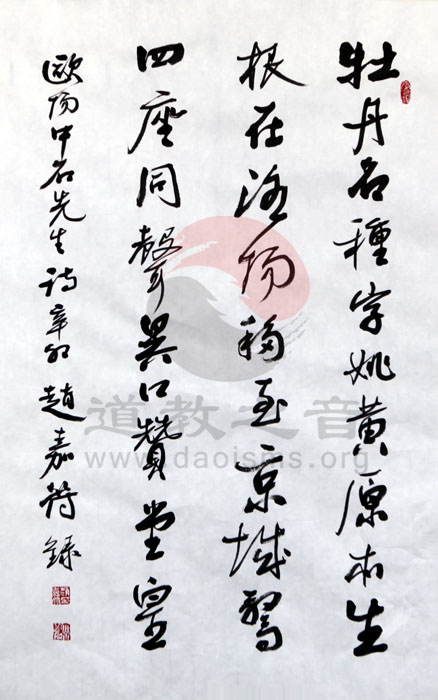 牡丹名種字姚黄原本生
根在洛陽移至京城驚
四座同聲異口贊堂皇
歐陽中石先生詩辛卯趙嘉符錄
道教之音
www.daoisms.org